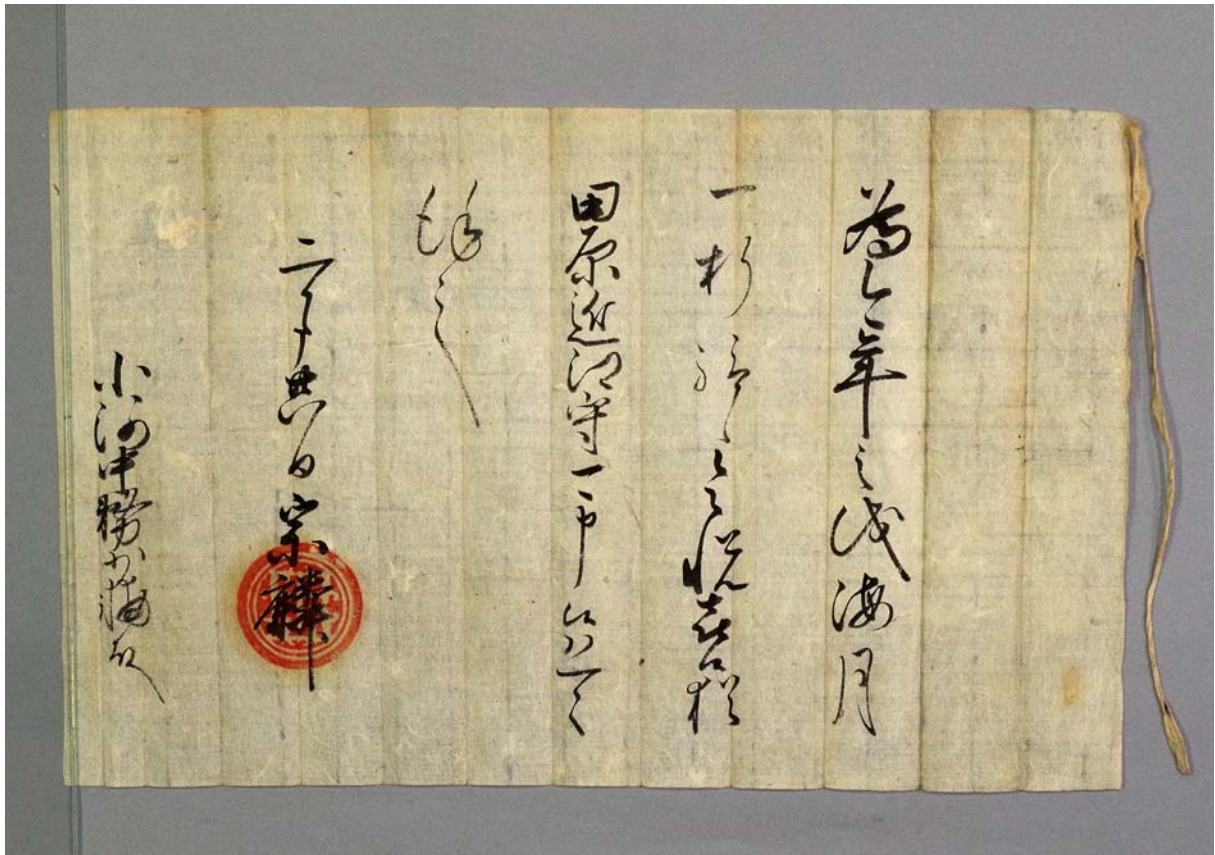 為年之儀海月
一折給候悦喜候猶
田原近江守可申候恐々
謹言
二月廿八日 宗麟
小河中務少輔殿